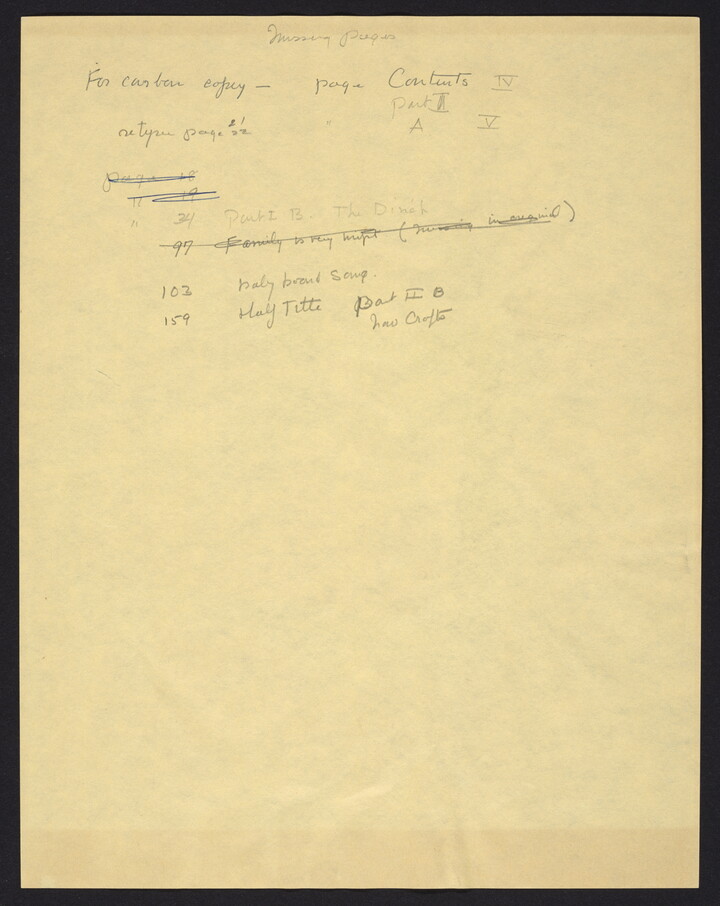 Missing pages
For carbon copy — page Contents IV
Part II
retype page 22 " A V
page 18
" 19
" 34 Part I B. The Dineh
97 Family is very (missing in original)
103 baby board Song.
159 Half Title Part II B
Nav Crafts